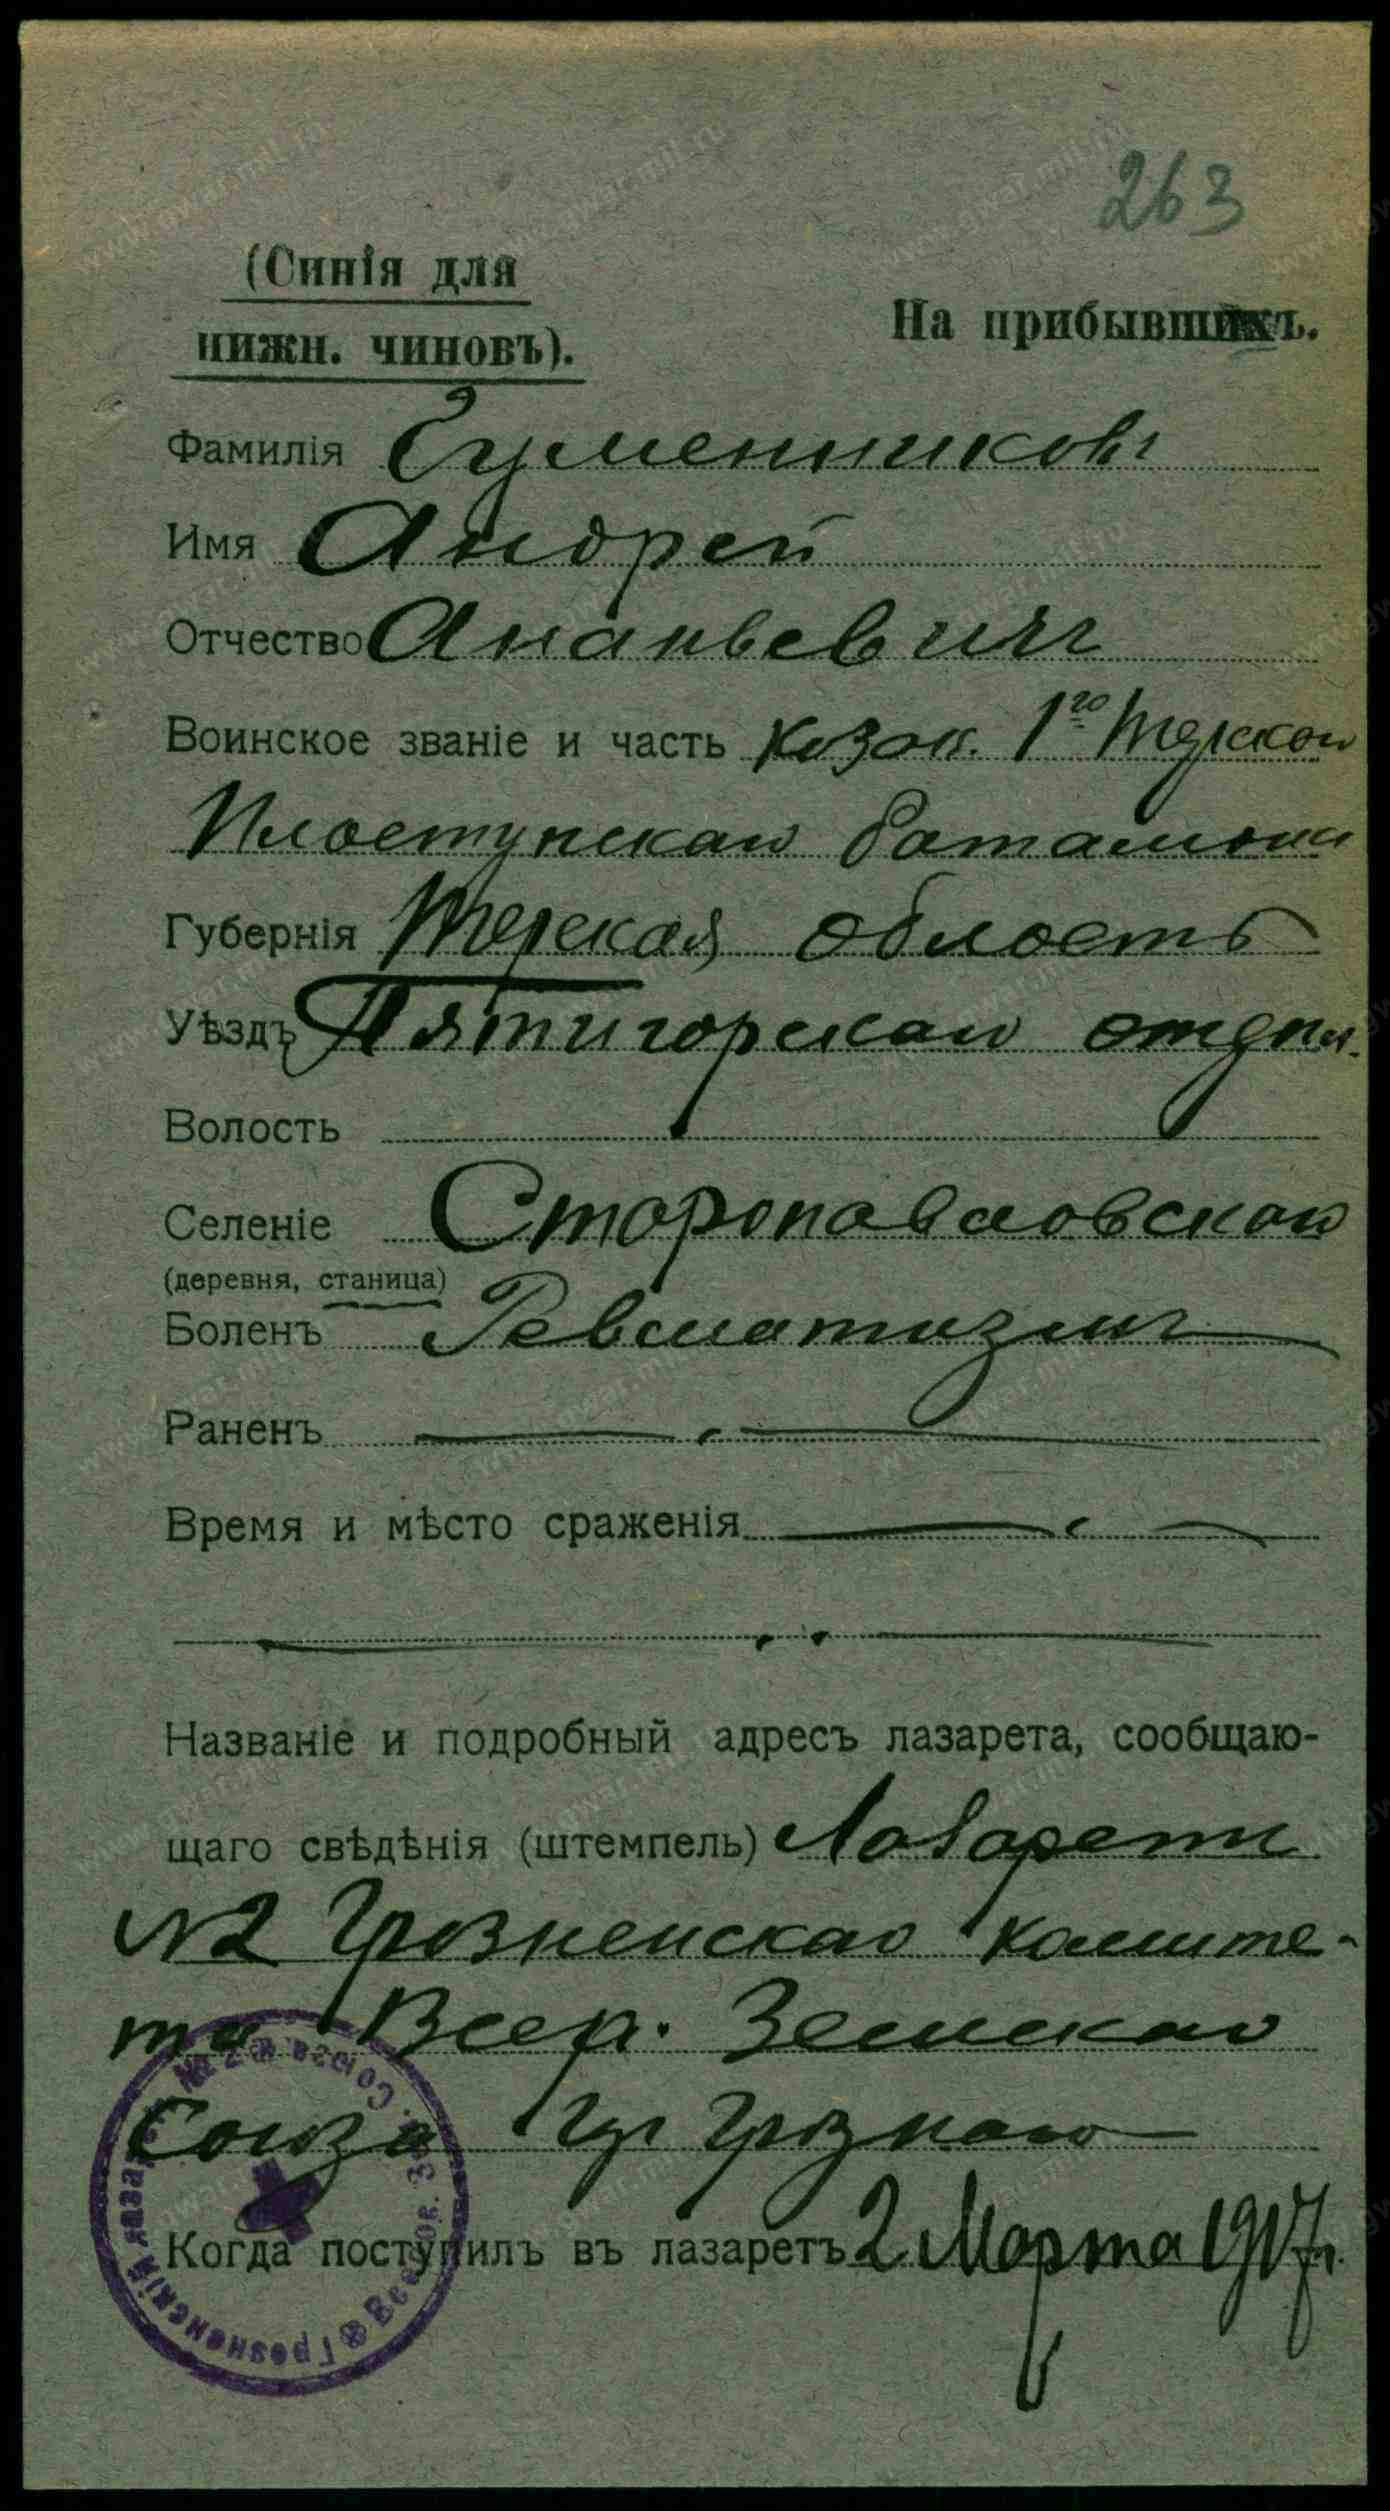 263
(Синія для
нижн. чиновъ).
На прибывшихъ.
Фамилія Гуменниковъ
Имя Андрей
Отчество Ананьевичъ
Воинское званіе и часть козак. 1го Терскаго
Пластунскаго батальона
Губернія Терская область
Уѣздъ Пятигорскаго отдѣл.
Волость
Селеніе Старопавловской
(деревня, станица)
Боленъ Ревматизмъ
Раненъ
Время и мѣсто сраженія
Названіе и подробный адресъ лазарета, сообщаю-
щаго свѣдѣнія (штемпель) Лазаретъ
№2 Грозненскаго Комите-
та Всер. Земскаго
Союза Гр Грознаго
Когда поступилъ въ лазаретъ 2 Марта 1917г.
Грозненскій лазаретъ №2 Всеров. Зем. Союза